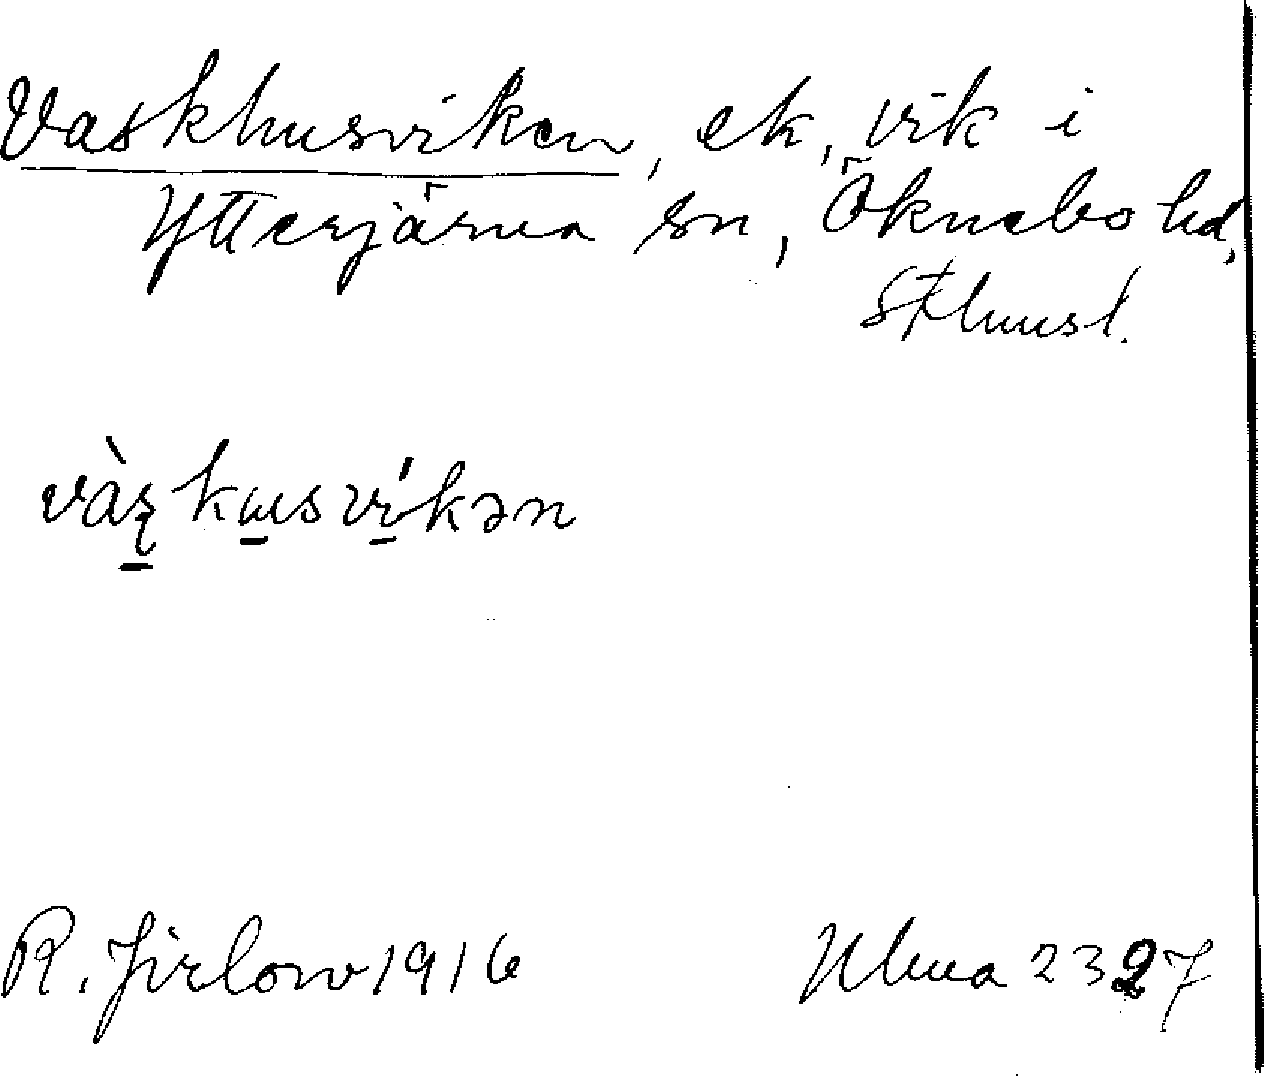 Vaskhusviken, ek, vik i
Ytterjärna sn, Öknebo hd,
Sthmsl.
vàskusvíkən
R. Jirlow 1916
Ulma 2327